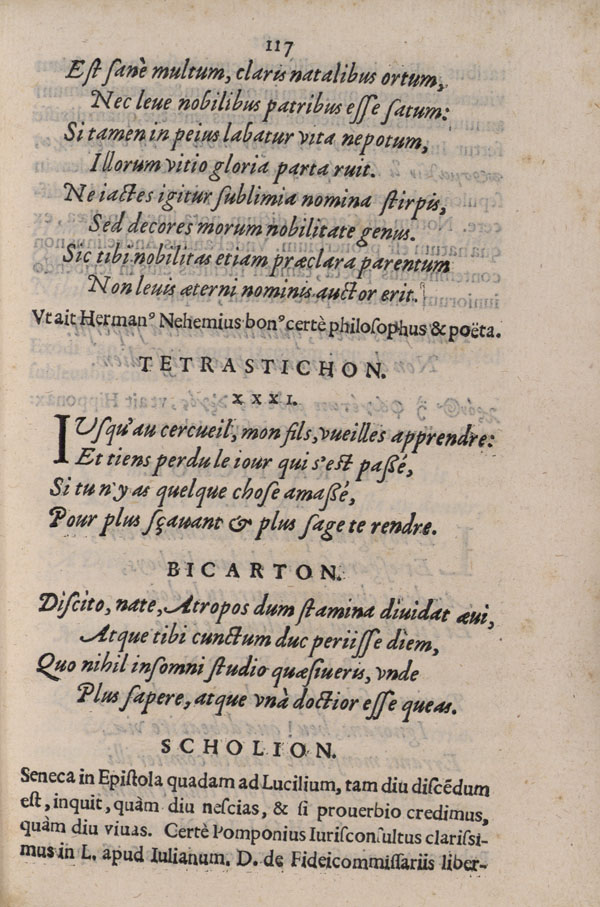 117
Est sanè multum, claris natalibus ortum,
Nec leue nobilibus patribus esse satum:
Si tamen in peius labatur vita nepotum,
Illorum vitio gloria parta ruit.
Ne iactes igitur sublimia nomina stirpis,
Sed decores morum nobilitate genus.
Sic tibi nobilitas etiam præclara parentum
Non leuis æterni nominis auctor erit.
Vt ait Hermanꝰ Nehemius bonꝰ certè philosophus & poëta.
TETRASTICHON.
XXXI.
IUsqu'au cercueil, mon fils, vueilles apprendre:
Et tiens perdu le iour qui s'est passé,
Si tu n'y as quelque chose amassé,
Pour plus sçauant & plus sage te rendre.
BICARTON.
Discito, nate, Atropos dum stamina diuidat æui,
Atque tibi cunctum duc periisse diem,
Quo nihil insomni studio quæsiueris, vnde
Plus sapere, atque vnà doctior esse queas.
SCHOLION.
Seneca in Epistola quadam ad Lucilium, tam diu discēdum
est, inquit, quàm diu nescias, & si prouerbio credimus,
quàm diu viuas. Certè Pomponius Iurisconsultus clarissi-
mus in L. apud Iulianum. D. de Fideicommissariis liber-